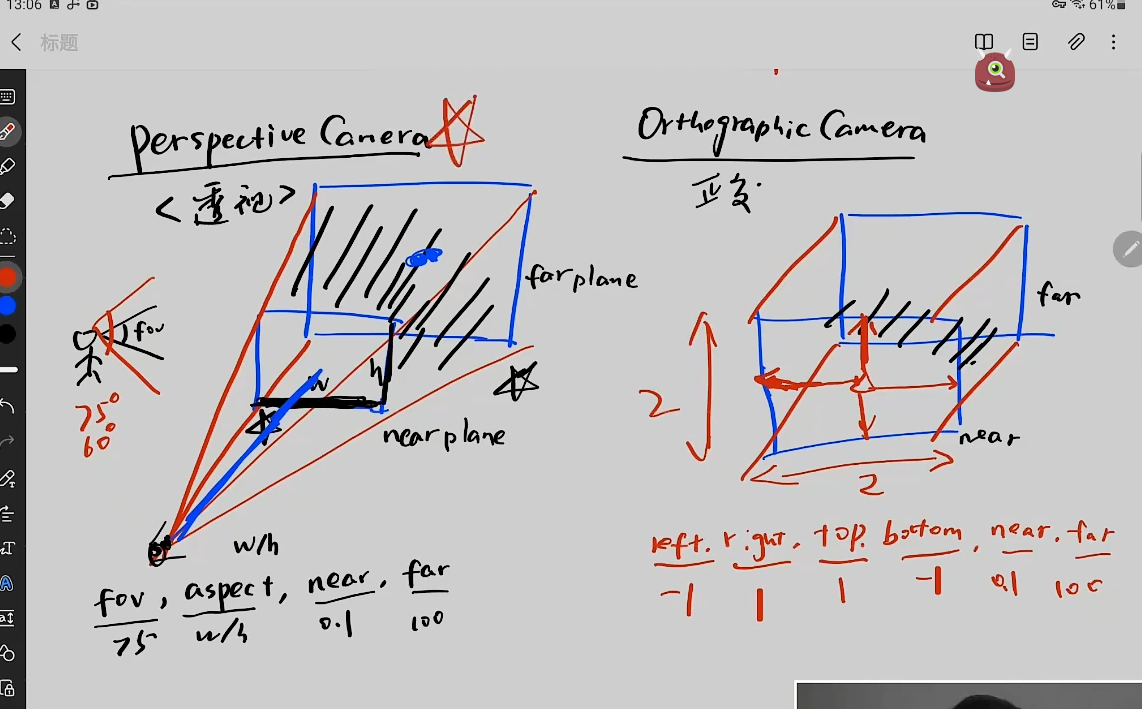 13:06
61%
标题
Perspective Canera
<透视>
far plane
fov
75°
60°
w
h
near plane
w/h
fov, aspect, near, far
75 w/h 0.1 100
Orthographic Camera
正交
far
2
near
2
left, right, top, bottom, near, far
-1 1 1 -1 0.1 100